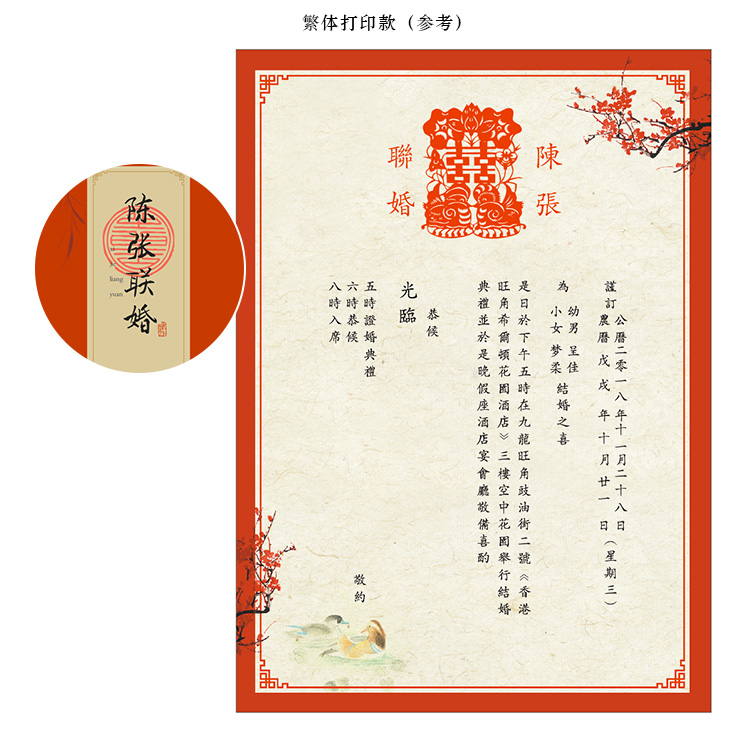 繁体打印款（参考）
陈张联婚
liang
yuan
陳張
聯婚
謹訂
公曆二零一八年十一月二十八日
農曆戊戌年十月廿一日（星期三）
為
幼男 呈佳
小女 梦柔
結婚之喜
是日於下午五時在九龍旺角豉油街二號《香港
旺角希爾頓花園酒店》三樓空中花園舉行結婚
典禮並於是晚假座酒店宴會廳敬備喜酌
恭候
光臨
五時證婚典禮
六時恭候
八時入席
敬約